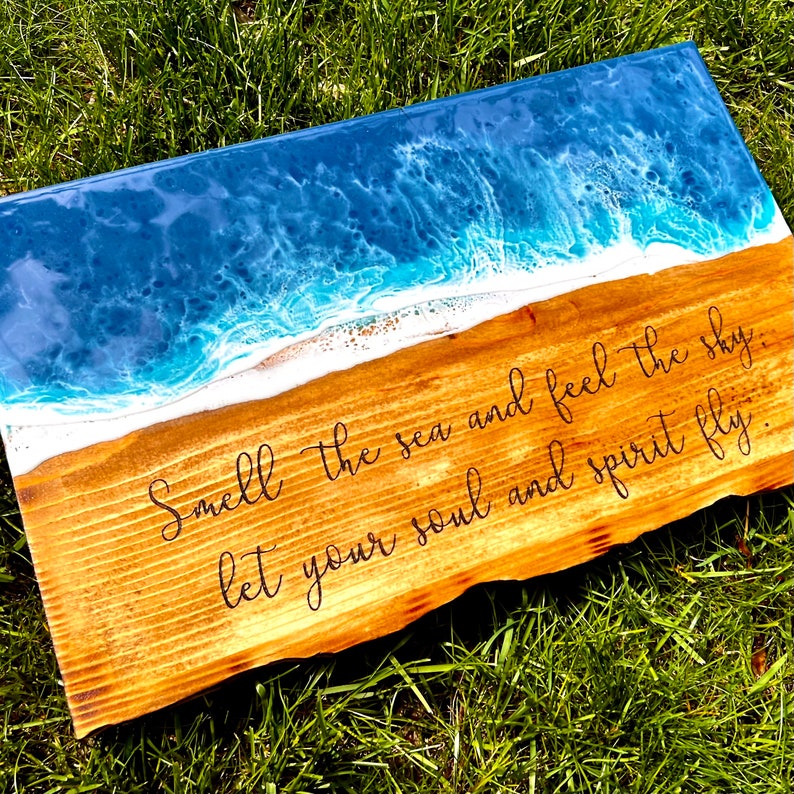 Smell the sea and feel the sky.
let your soul and spirit fly.